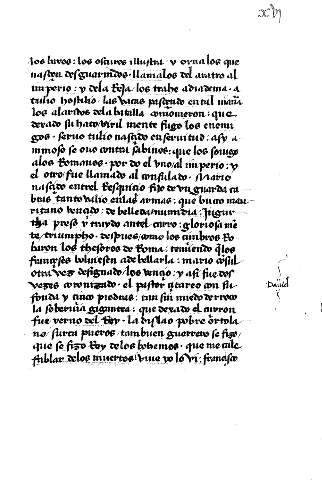 xvj
los baxos: los oscuros illustra y orna los que
nasçen desguarnidos. llamalos del aratro al
imperio: y dela Reja los trahe a diadema. a
tulio hostilio. las vacas pasçiendo en tal
los alardes dela batalla comoueron: que
dexado su hato viril mente fugo los enemi
gos. seruo tulio nasçido en seruitud: asy a
nimoso se ouo contra sabinos: que los sojugo
alos Romanos. por do el vno al imperio: y
el otro fue llamado al consulado. Mario
nasçido entrel fijo de vn guarda ca
bras tanto valio en las armas: que
vençido: de
tha preso y traydo antel carro: gloriosa me
te triumpho. despues como los cimbros Ro
baron los thesoros de Roma: temiendo qlos
françeses boluiesen a debellarla: mario cōsul
otra vez designado los vençio: y asi fue dos
vezes coronizado. el pastor citareo con su
fonda y çinco piedras: tan sin miedo derroco
la soberuia gigantea: que dexado el çurron
fue yerno del Rey. la dislao pobre ortola
no surca pueros. tambien guerrero se fizo
que se fizo Rey delos bohemos. que me cale
fablar delos muertos que yo lo vi: françisco
Dauid